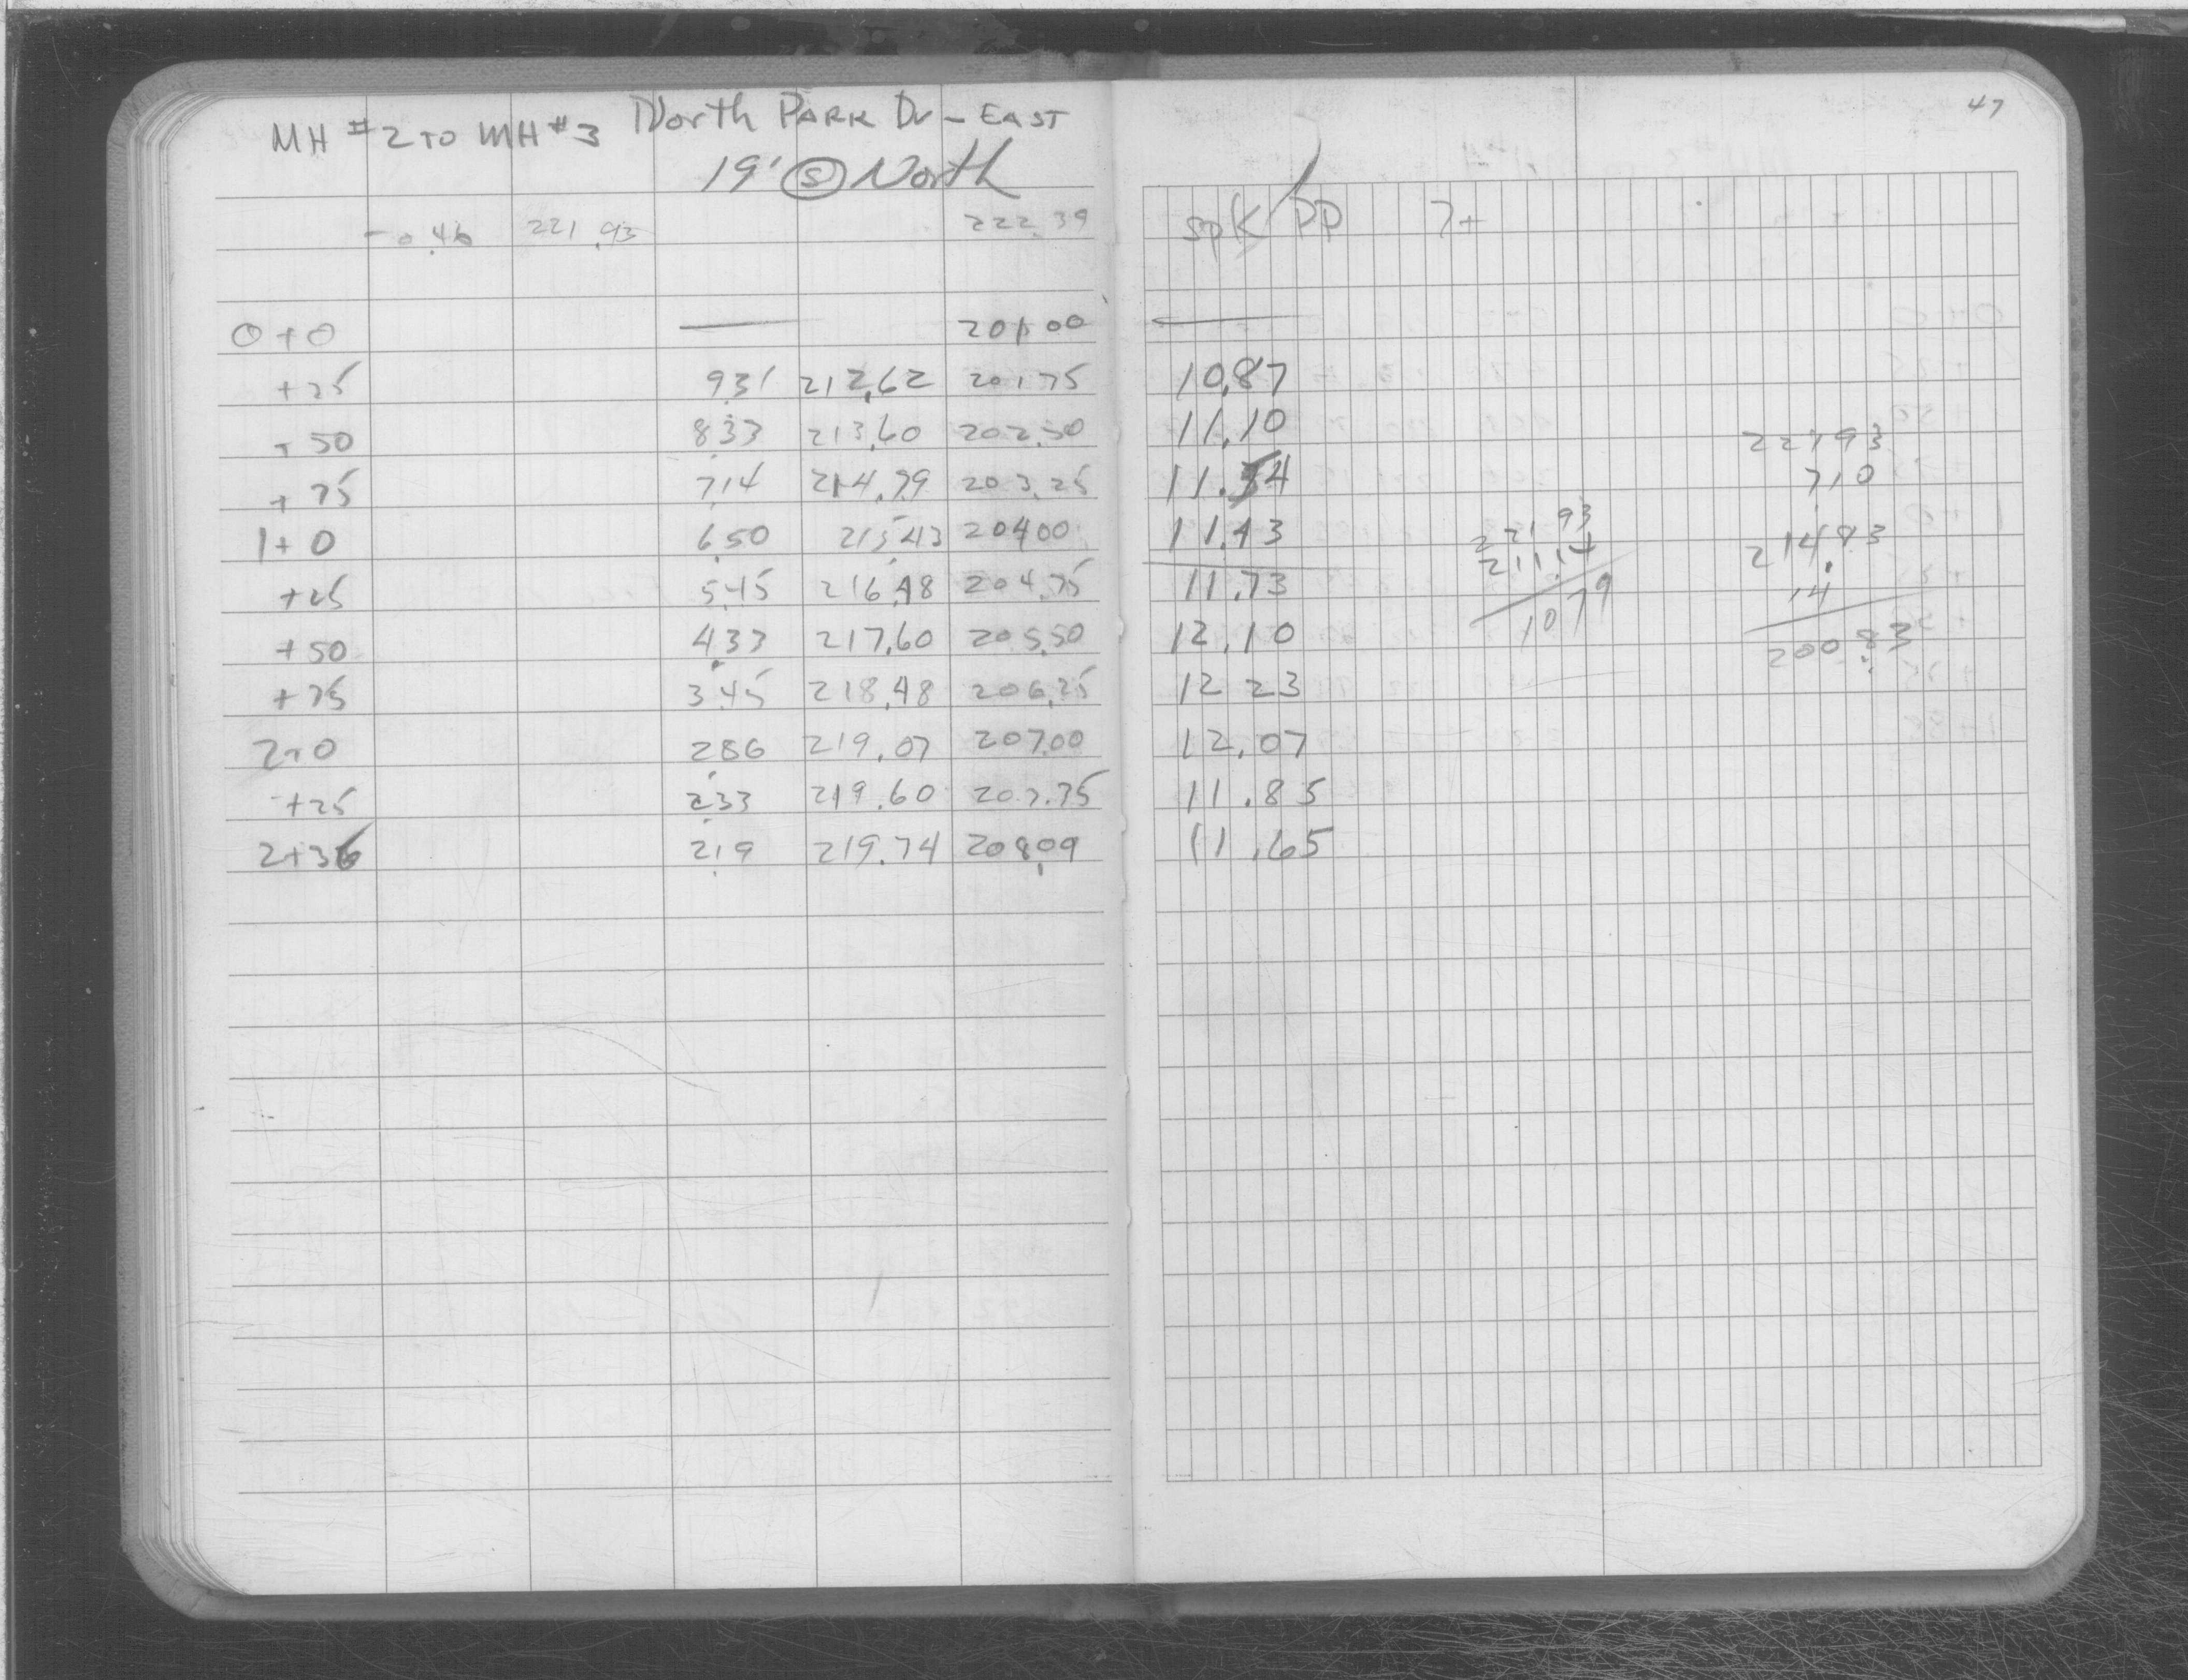 47
MH #2 TO MH #3 North PARK Dr - EAST
19' Ⓢ North
-0.46 221.93 222.39 spk PP 7+
0+0 — 201.00 —
+25 9.31 212.62 201.75 10.87
+50 8.33 213.60 202.50 11.10
+75 7.14 214.79 203.25 11.54
1+0 6.50 215.43 204.00 11.43
+25 5.45 216.48 204.75 11.73
+50 4.33 217.60 205.50 12.10
+75 3.45 218.48 206.25 12 23
2+0 2.86 219.07 207.00 12.07
+25 2.33 219.60 207.75 11.85
2+36 2.19 219.74 208.09 11.65
221 93
211.14
10 79
221 93
7.10
214.83
14
200.83